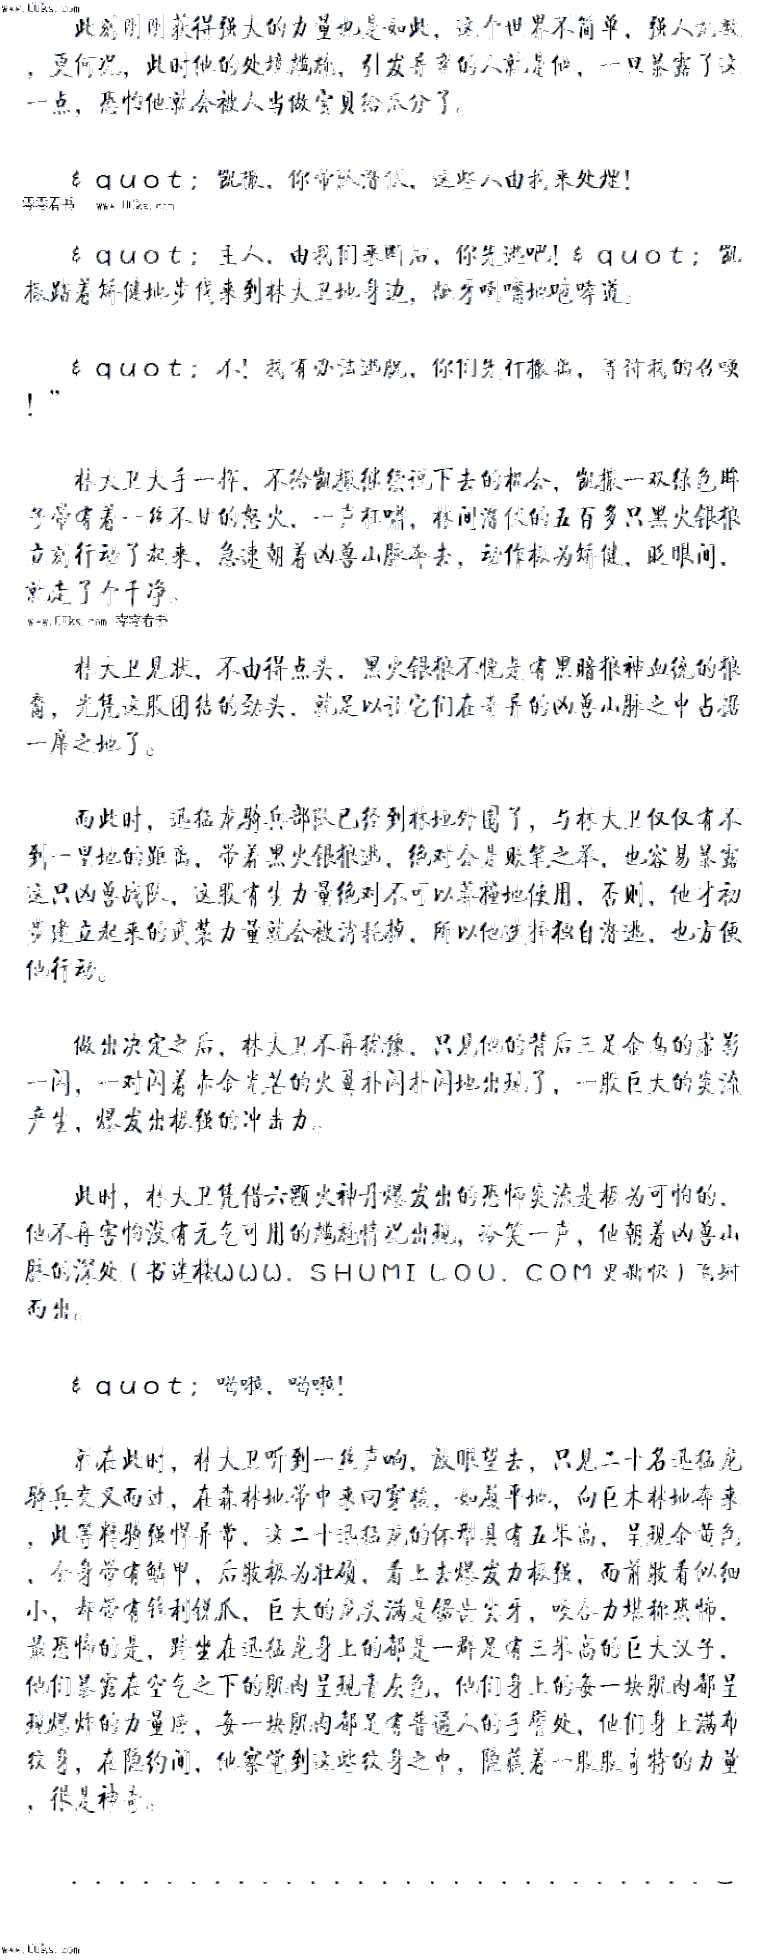 www.UUks.com
此刻刚刚获得强大的力量也是如此，这个世界不简单，强人无数
，更何况，此时他的处境尴尬，引发异变的人就是他，一旦暴露了这
一点，恐怕他就会被人当做宝贝给瓜分了。
&quot；凯撒，你带队潜伏，这些人由我来处理！
www.UUks.com
&quot；主人，由我们来断后，你先逃吧！&quot；凯
撒踏着矫健地步伐来到林大卫地身边，龇牙咧嘴地咆哮道。
&quot；不！我有办法逃脱，你们先行撤离，等待我的召唤
！”
林大卫大手一挥，不给凯撒继续说下去的机会，凯撒一双绿色眸
子带有着一丝不甘的怒火，一声狂啸，林间潜伏的五百多只黑火银狼
立刻行动了起来，急速朝着凶兽山脉奔去，动作极为矫健，眨眼间，
就走了个干净。
www.UUks.com
林大卫见状，不由得点头，黑火银狼不愧是有黑暗狼神血统的狼
裔，光凭这股团结的劲头，就足以让它们在奇异的凶兽山脉之中占据
一席之地了。
而此时，迅猛龙骑兵部队已经到林地外围了，与林大卫仅仅有不
到一里地的距离，带着黑火银狼逃，绝对会是败笔之举，也容易暴露
这只凶兽战队，这股有生力量绝对不可以莽撞地使用，否则，他才初
步建立起来的武装力量就会被消耗掉，所以他选择独自潜逃，也方便
他行动。
做出决定之后，林大卫不再犹豫，只见他的背后三足金乌的虚影
一闪，一对闪着赤金光芒的火翼扑闪扑闪地出现了，一股巨大的炎流
产生，爆发出极强的冲击力。
此时，林大卫凭借六颗火神丹爆发出的恐怖炎流是极为可怕的，
他不再害怕没有元气可用的尴尬情况出现，冷笑一声，他朝着凶兽山
脉的深处（书迷楼WWW．SHUMILOU．COM更新快）飞射
而出。
&quot；哟啦，哟啦！
就在此时，林大卫听到一丝声响，放眼望去，只见二十名迅猛龙
骑兵交叉而过，在森林地带中来回穿梭，如履平地，向巨木林地奔来
，此等精骑强悍异常，这二十迅猛龙的体型具有五米高，呈现金黄色
，全身带有鳞甲，后肢极为壮硕，看上去爆发力极强，而前肢看似细
小，却带有锋利锐爪，巨大的龙头满是锯齿尖牙，咬合力堪称恐怖，
最恐怖的是，蹲坐在迅猛龙身上的都是一群足有三米高的巨大汉子，
他们暴露在空气之下的肌肉呈现青灰色，他们身上的每一块肌肉都呈
现爆炸的力量感，每一块肌肉都足有普通人的手臂处，他们身上满布
纹身，在隐约间，他察觉到这些纹身之中，隐藏着一股股奇特的力量
，很是神奇。
．．．．．．．．．．．．．．．．．．．．．．．．．．．）
www.UUks.com